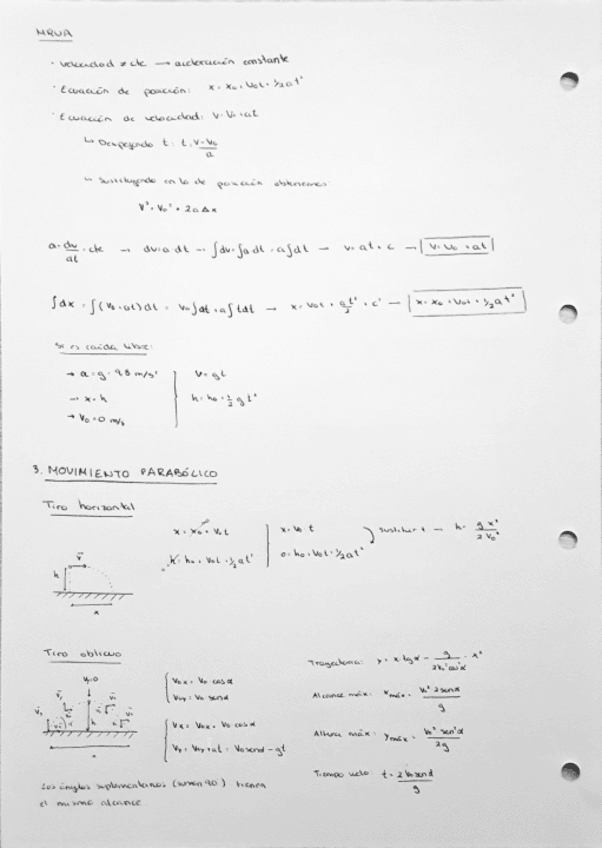 MRUA
· velocidad ≠ cte → aceleración constante
· Ecuación de posición: x = x₀ + v₀t + 1/2 a t²
· Ecuación de velocidad: v = v₀ + at
↳ Despejando t: t = (v - v₀)/a
↳ Sustituyendo en la de posición obtenemos:
v² = v₀² + 2a Δx
a = dv/dt = cte → dv = a dt → ∫dv = ∫a dt = a∫dt → v = at + c → v = v₀ + at
∫dx = ∫(v₀ + at)dt = v₀∫dt + a∫tdt → x = v₀t + at²/2 + c' → x = x₀ + v₀t + 1/2 a t²
Si es caída libre:
→ a = g = 9.8 m/s² v = gt
→ x = h h = h₀ + 1/2 g t²
→ v₀ = 0 m/s
3. MOVIMIENTO PARABÓLICO
Tiro horizontal
x = x₀ + v₀t x = v₀ t sustituir t → h = g x²/2 v₀²
h = h₀ + v₀t + 1/2 a t² 0 = h₀ + v₀t + 1/2 a t²
v
h
x
Tiro oblicuo
v₀x = v₀ cos α
v₀y = v₀ sen α
vx = v₀x = v₀ cos α
vy = v₀y + at = v₀ sen α - gt
Trayectoria: y = x · tg α - g/(2v₀² cos² α) · x²
Alcance máx: xmáx = v₀² 2senα/g
Altura máx: ymáx = v₀² sen² α/2g
Tiempo vuelo: t = 2 v₀ sen α/g
Los ángulos suplementarios (suman 90) tienen
el mismo alcance.